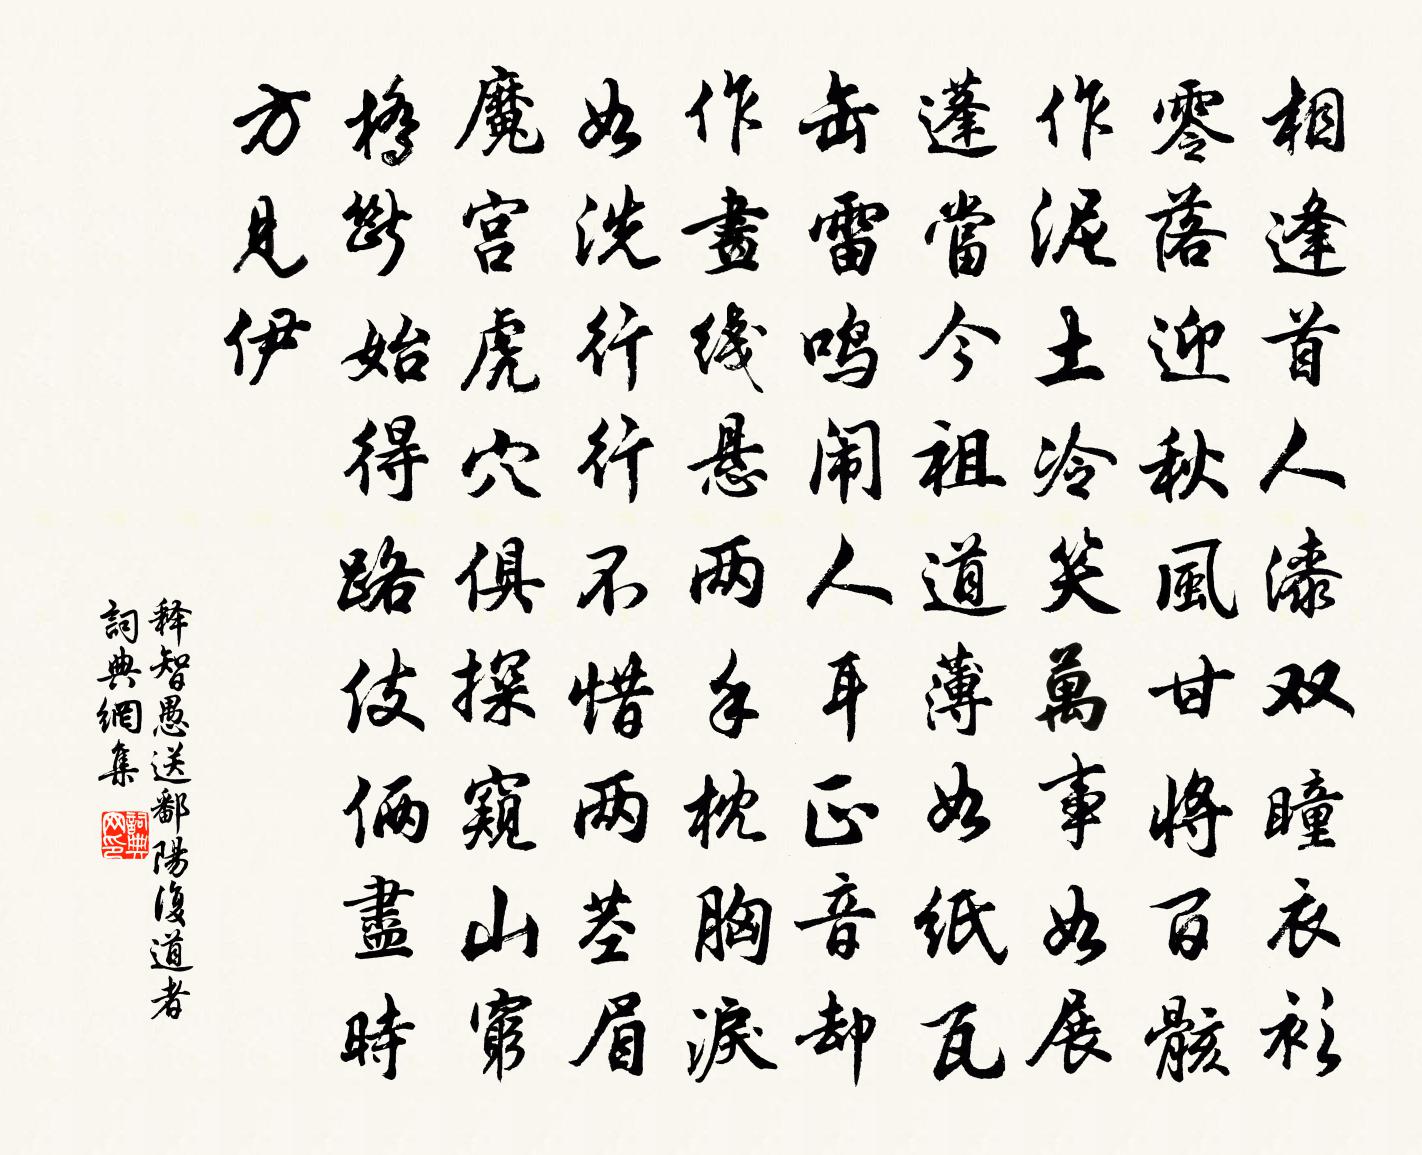 相逢首人漆双瞳衣衫
零落迎秋風甘將百骸
作泥土冷笑萬事如展
蓬當今祖道薄如紙瓦
缶雷鸣闹人耳正音却
作晝线悬两手枕胸淚
如洗行行不惜两茎眉
魔宫虎穴俱探窺山窮
橋斷始得路伎俩盡時
方見伊
释智愚送鄱陽復道者
詞典網集
詞典网印